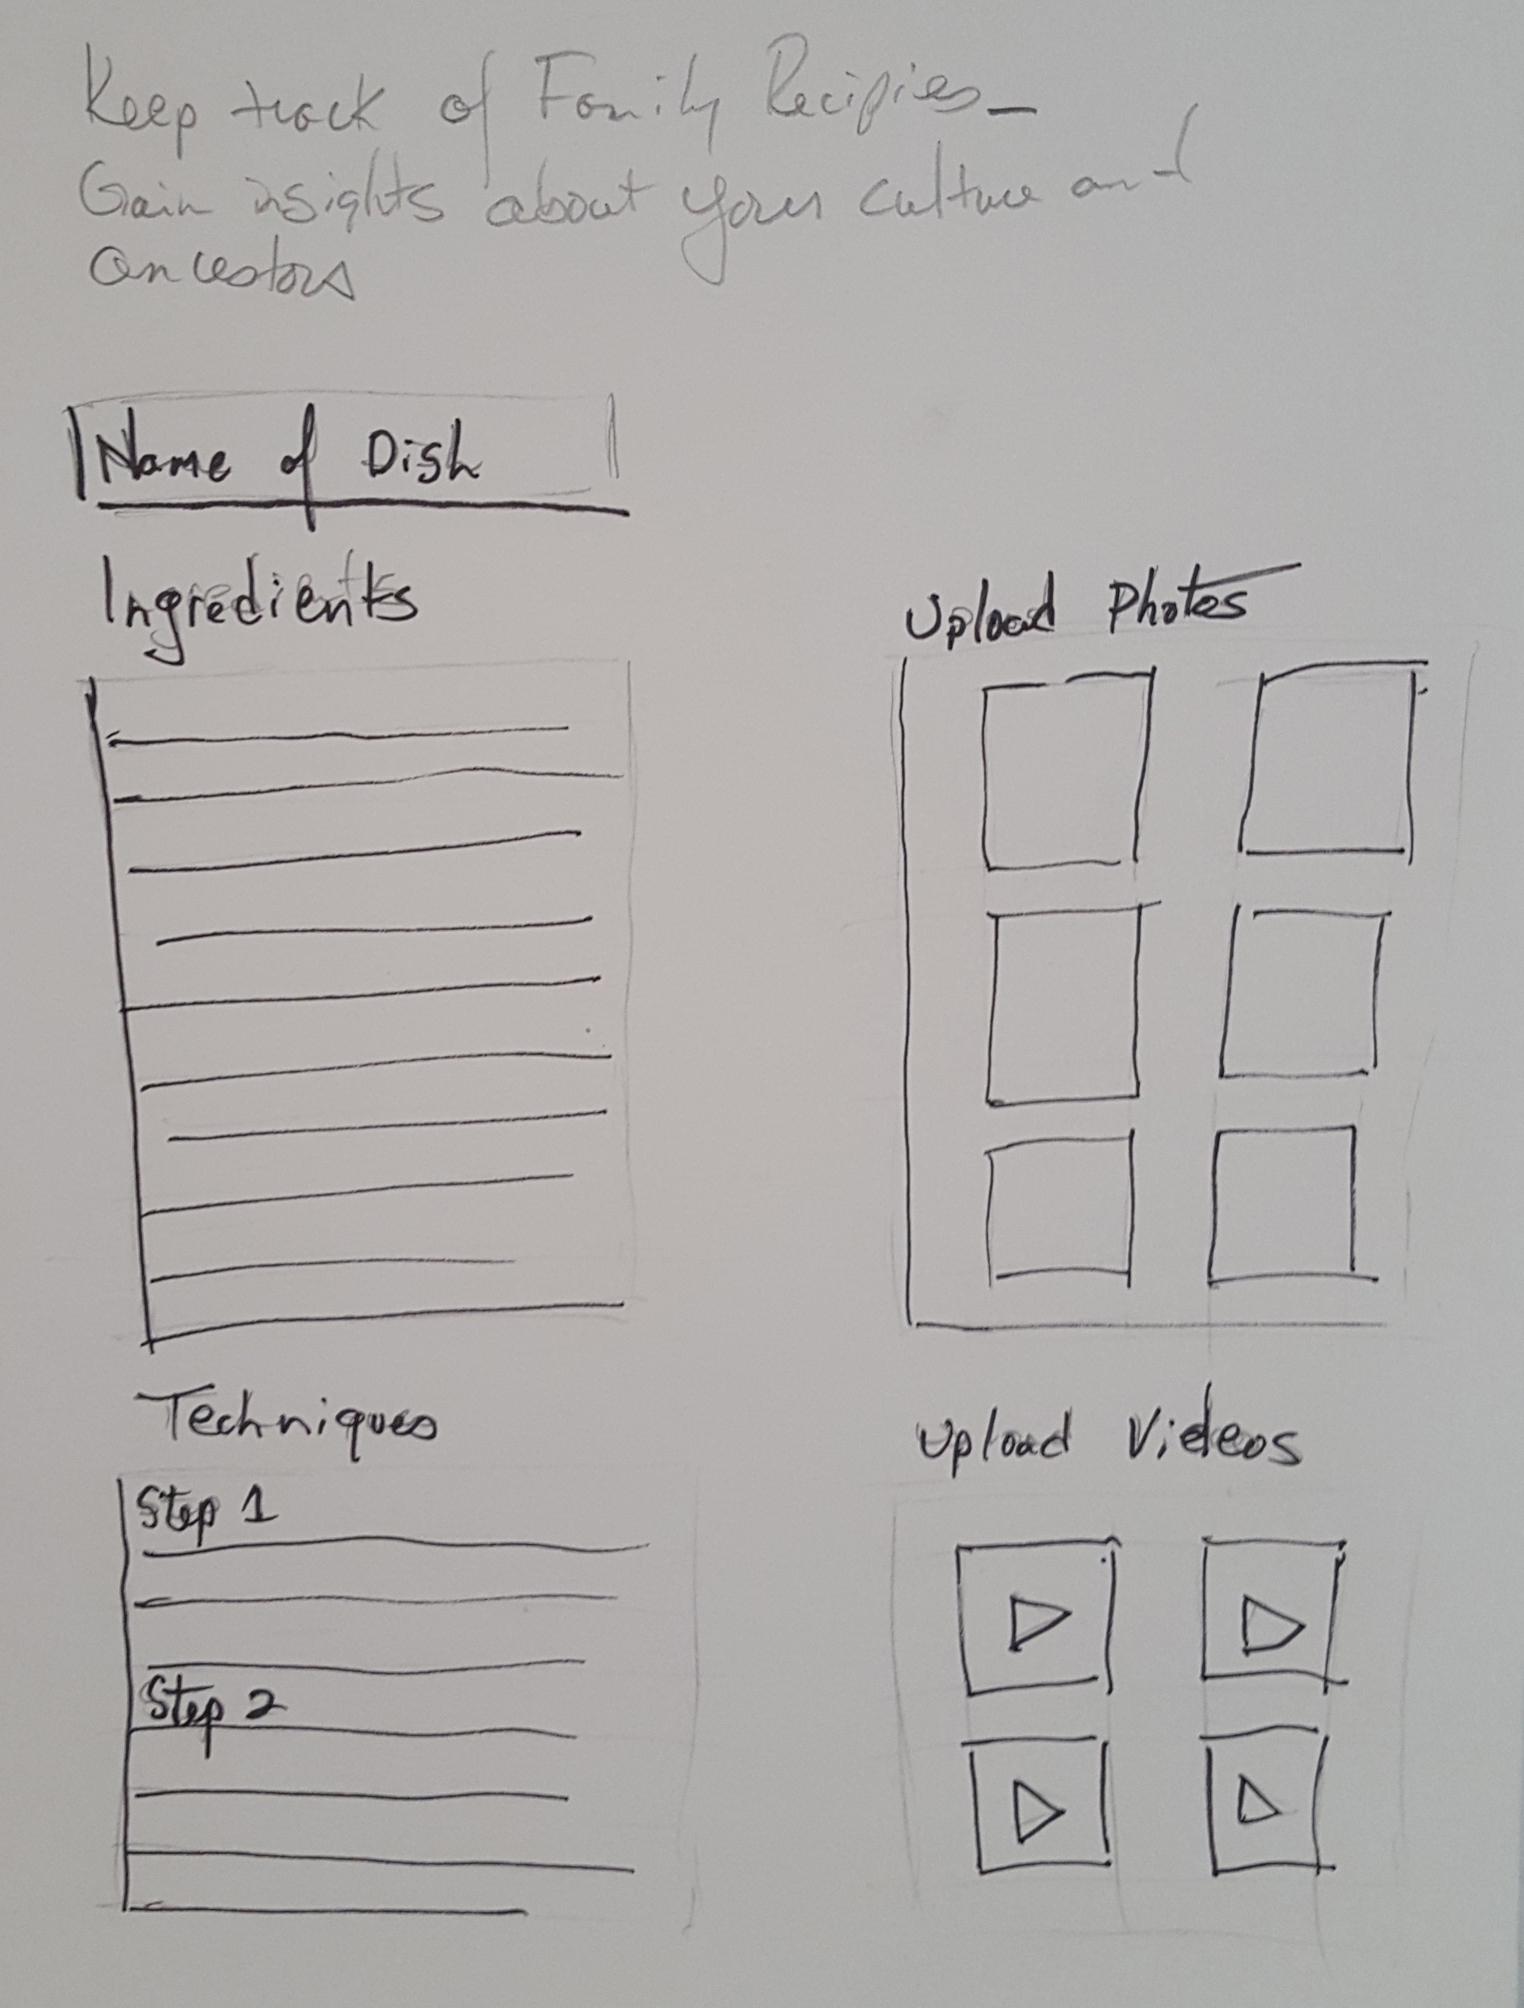 Keep track of Family Recipies-
Gain insights about your culture and
ancestors
Name of Dish
Ingredients
Upload Photos
Techniques
Step 1
Step 2
Upload Videos